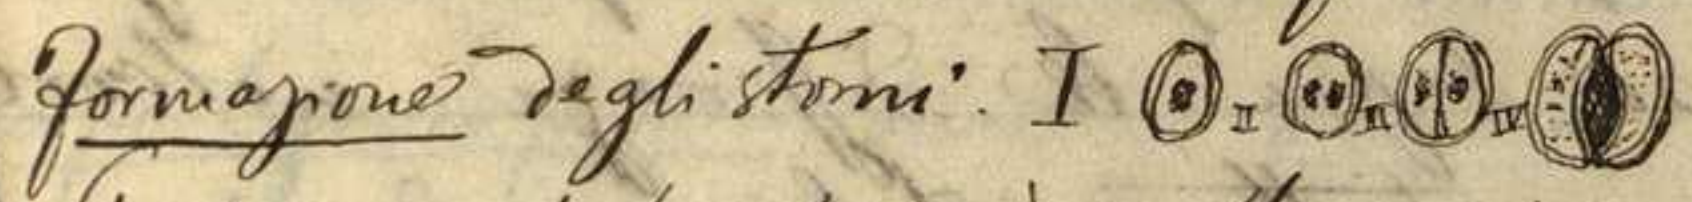 Formazione degli stomi. I II III IV